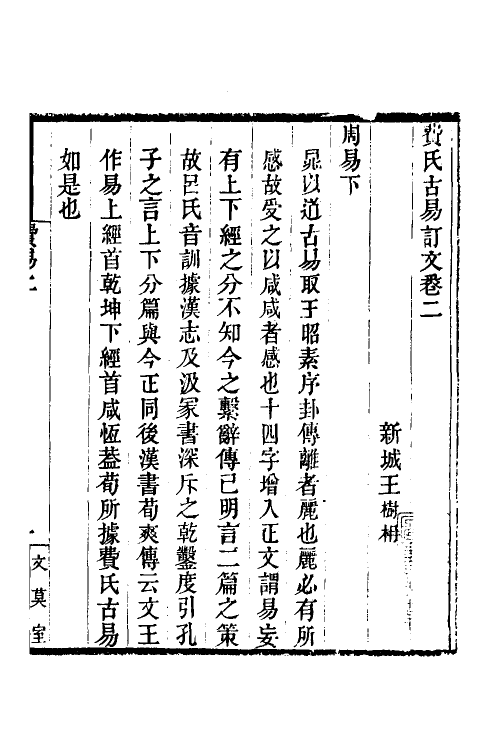 費氏古易訂文卷二
新城王樹枏
周易下
晁以道古易取王昭素序卦傳離者麗也麗必有所
感故受之以咸咸者感也十四字增入正文謂易妄
有上下經之分不知今之繫辭傳已明言二篇之策
故呂氏音訓據漢志及汲冢書深斥之乾鑿度引孔
子之言上下分篇與今正同後漢書荀爽傳云文王
作易上經首乾坤下經首咸恆葢荀所據費氏古易
如是也
費易二
一
文莫室